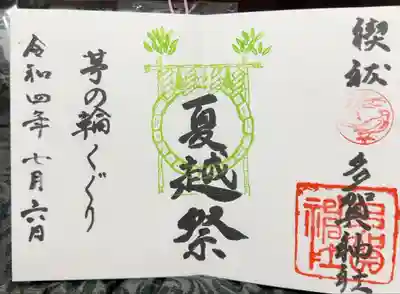 禊祓
多賀神社
夏越祭
茅の輪くぐり
令和四年七月六日